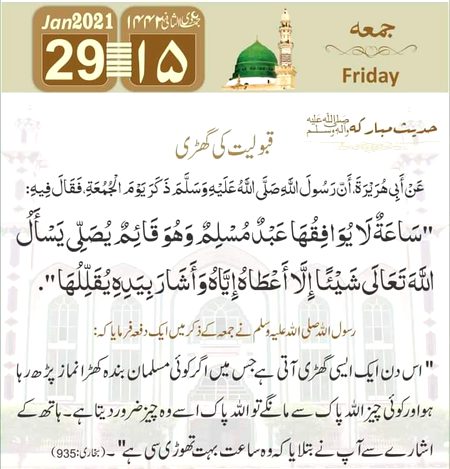 Jan2021 جمادی الثانی ۱۴۴۲
29 ۱۵
جمعہ
Friday
حدیث مبارکہ صلی اللہ علیہ وآلہ وسلم
قبولیت کی گھڑی
عَنْ أَبِي هُرَيْرَةَ، أَنَّ رَسُولَ اللَّهِ صَلَّى اللَّهُ عَلَيْهِ وَسَلَّمَ ذَكَرَ يَوْمَ الْجُمُعَةِ، فَقَالَ فِيهِ:
"سَاعَةٌ لَا يُوَافِقُهَا عَبْدٌ مُسْلِمٌ وَهُوَ قَائِمٌ يُصَلِّي يَسْأَلُ
اللَّهَ تَعَالَى شَيْئًا إِلَّا أَعْطَاهُ إِيَّاهُ وَأَشَارَ بِيَدِهِ يُقَلِّلُهَا".
رسول اللہ صلی اللہ علیہ وسلم نے جمعہ کے ذکر میں ایک دفعہ فرمایا کہ:
" اس دن ایک ایسی گھڑی آتی ہے جس میں اگر کوئی مسلمان بندہ کھڑا نماز پڑھ رہا
ہو اور کوئی چیز اللہ پاک سے مانگے تو اللہ پاک اسے وہ چیز ضرور دیتا ہے۔ ہاتھ کے
اشارے سے آپ نے بتلایا کہ وہ ساعت بہت تھوڑی سی ہے"۔ (بخاری: 935)